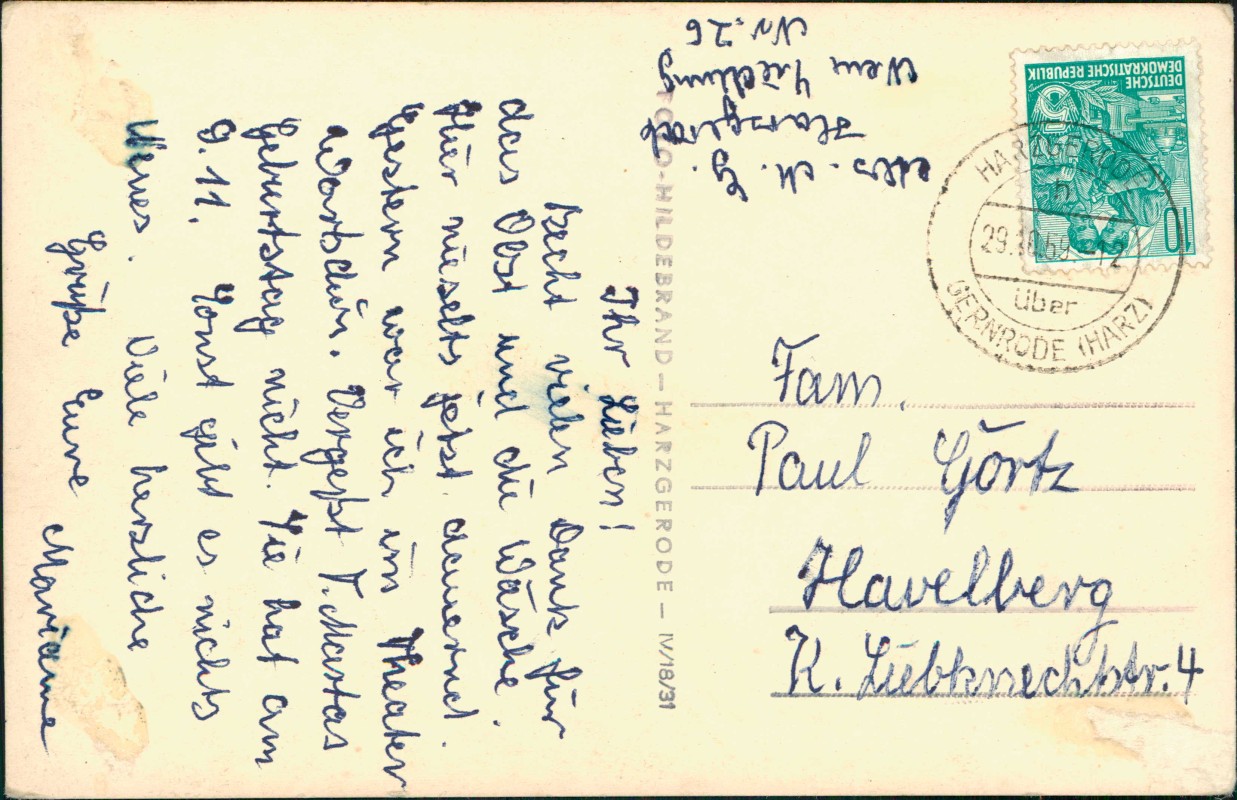 Ihr Lieben!
Recht vielen Dank für
das Obst und die Wäsche.
Hier nieselts jetzt dauernd.
Gestern war ich im Theater
Vergeßt T. Martas
Geburtstag nicht. Sie hat am
9.11. Sonst gibt es nichts
Neues. Viele herzliche
Grüße Eure Marianne
FOTO-HILDEBRAND – HARZGERODE – IV/18/31
Abs. M. G.
Harzgerode
Neue Siedlung
Nr. 26
DEUTSCHE
DEMOKRATISCHE REPUBLIK
10
HARZGERODE
29.10.59.-12
über
GERNRODE (HARZ)
Fam.
Paul Görtz
Havelberg
K. Liebknechtstr. 4